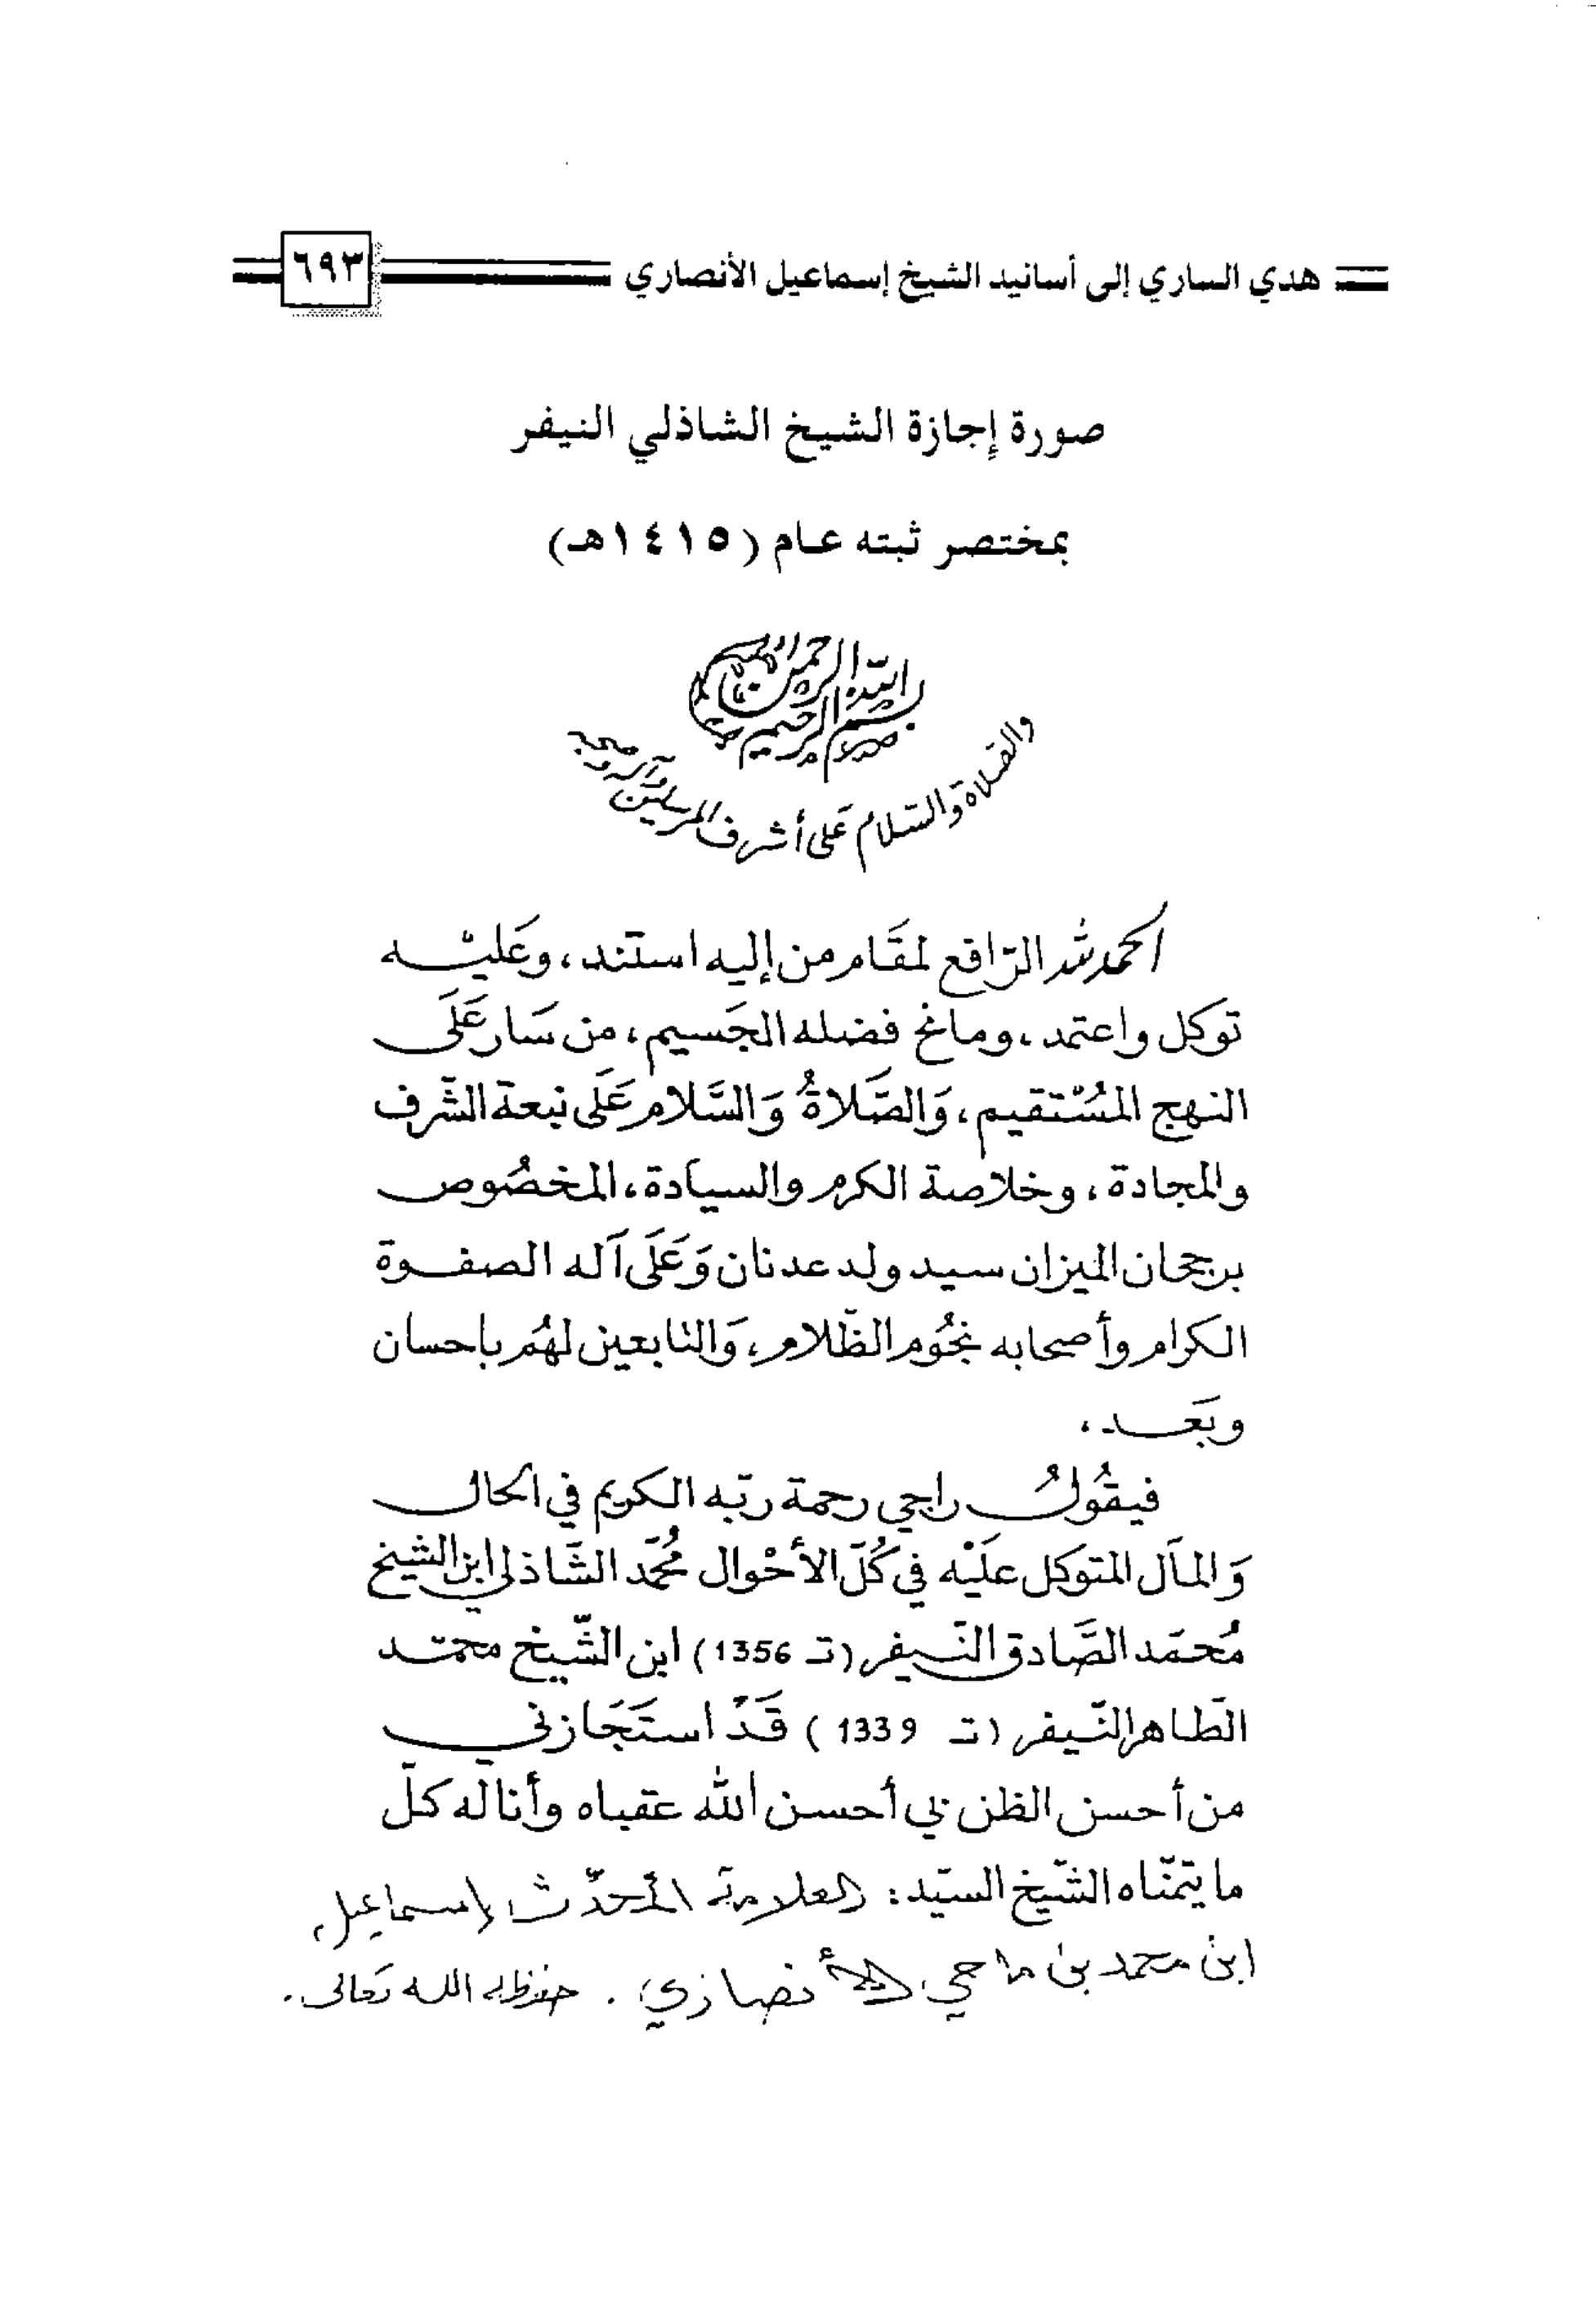 هدي الساري إلى أسانيد الشيخ إسماعيل الأنصاري ٦٩٣
صورة إجازة الشيخ الشاذلي النيفر
بمختصر ثبته عام (١٤١٥هـ)
بسم الله الرحمن الرحيم
والصّلاة وَالسّلام عَلى أشرف المرسلين وآله وصحبه
الحمد لله الرّافع لمقَام من إليه استند، وعَليْه
توكل واعتمد، ومانح فضله الجَسيم، من سَار عَلَى
النهج المُسْتقيم، وَالصَّلاةُ وَالسَّلام عَلَى نبعة الشّرف
والمجادة، وخلاصة الكرم والسيادة، المخصُوص
برجحان الميزان سيد ولد عدنان وَعَلَى آله الصفوة
الكرام وأصحابه نجُوم الظّلام، وَالتابعين لهُم بإحسان
وبَعد،
فيقُولُ راجي رحمة ربّه الكريم في الحال
وَالمآل المتوكل علَيْه في كُلّ الأحْوال مُحمّد الشَّاذلي ابن الشيخ
مُحمَد الصَّادق النّيفر (تـ 1356) ابن الشّيخ محمّد
الطّاهر النّيفر (تـ 1339) قَدْ استَجَازني
من أحسن الظن بي أحسن الله عقباه وأناله كلّ
ما يتمنّاه الشّيخ السيّد: العلامة المحدّث إسماعيل
ابن محمد بن ماحي الأنصاري. حفظه الله تعالى.